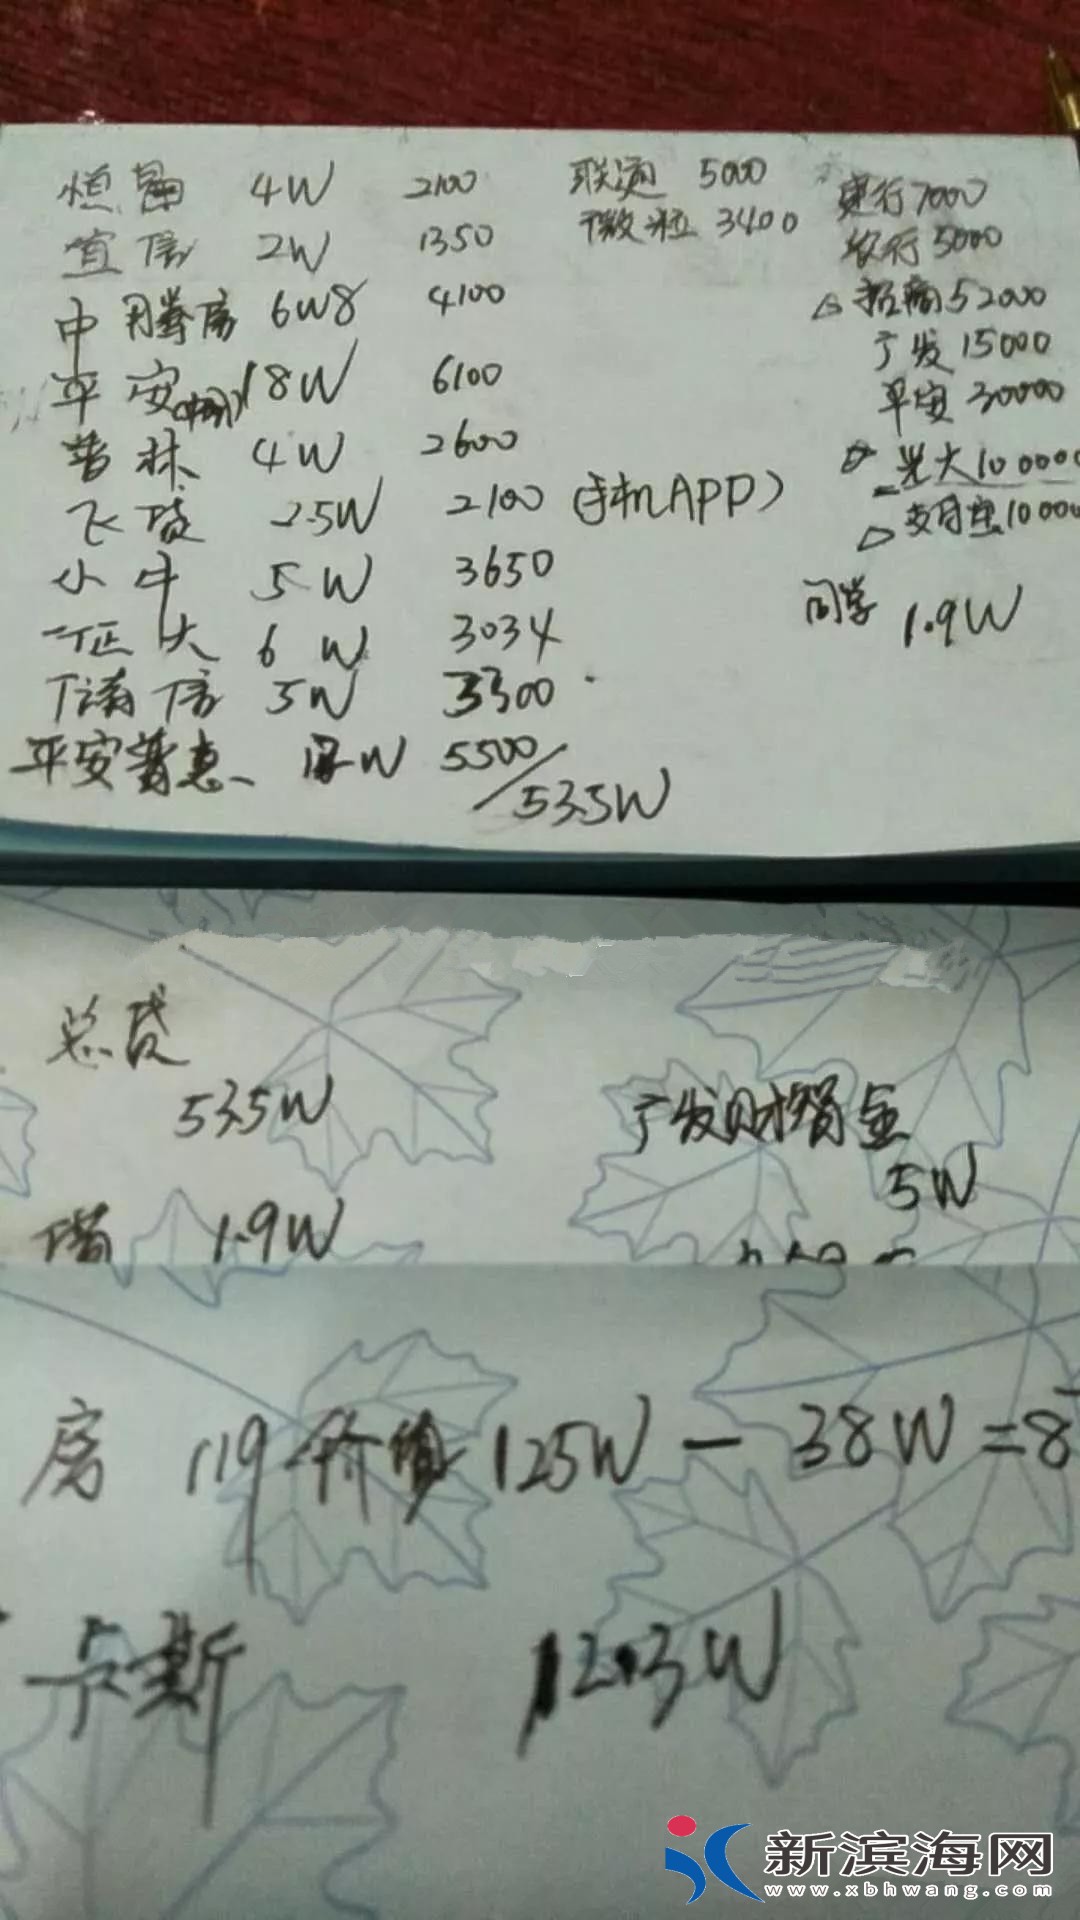 恒昌 4W 2100
宜信 2W 1350
中腾房 6W8 4100
平安 18W 6100
普林 4W 2600
飞贷 2.5W 2100 (手机APP)
小牛 5W 3650
证大 6W 3034
5W 3300
平安普惠 W 5500
53.5W
联通 5000
微粒 3400
建行7000
农行5000
招商52000
广发 15000
平安 30000
光大100000
支付宝1000
同学 1.9W
总贷
53.5W
借 1.9W
广发财智金
5W
房 119 价值 125W - 38W = 8
12.3W
新滨海网
www.xbhwang.com